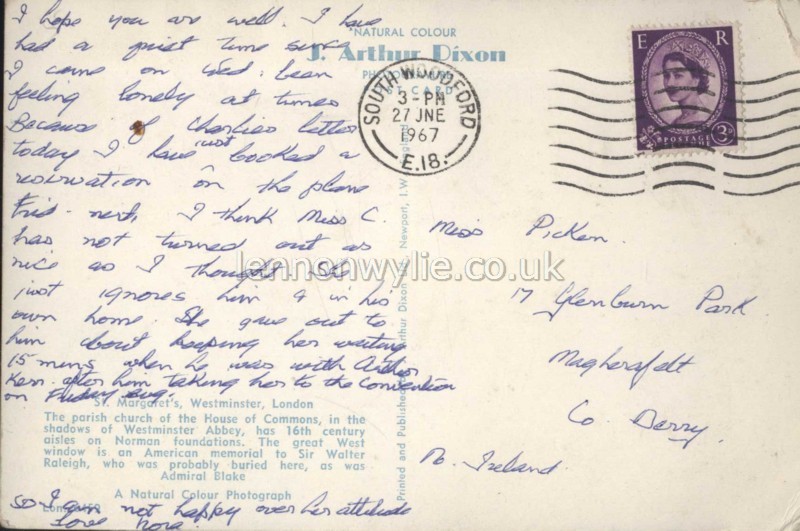 I hope you are well. I have
had a quiet time since
I came on Wed. been
feeling lonely at times
Because of Charlies letter
today I have just booked a
reservation on the plane
Frid. next, I think Miss C.
has not turned out as
nice as I thought. She
just ignores him & in his
own home. She gave out to
him about keeping her waiting
15 mins when he was with Arthur
Kerr. after him taking her to the Convention
on Friday evg.
so I am not happy over her attitude
Love Nora.
NATURAL COLOUR
J. Arthur Dixon
SOUTH WOODFORD
3-PM
27 JNE
1967
E.18.
E R
POSTAGE
3D
Miss Picken.
17 Glenburn Park
Magherafelt
Co Derry.
N. Ireland.
St. Margaret's, Westminster, London
The parish church of the House of Commons, in the
shadows of Westminster Abbey, has 16th century
aisles on Norman foundations. The great West
window is an American memorial to Sir Walter
Raleigh, who was probably buried here, as was
Admiral Blake
A Natural Colour Photograph
Printed and Published Arthur Dixon Ltd., Newport, I.W.
lennonwylie.co.uk